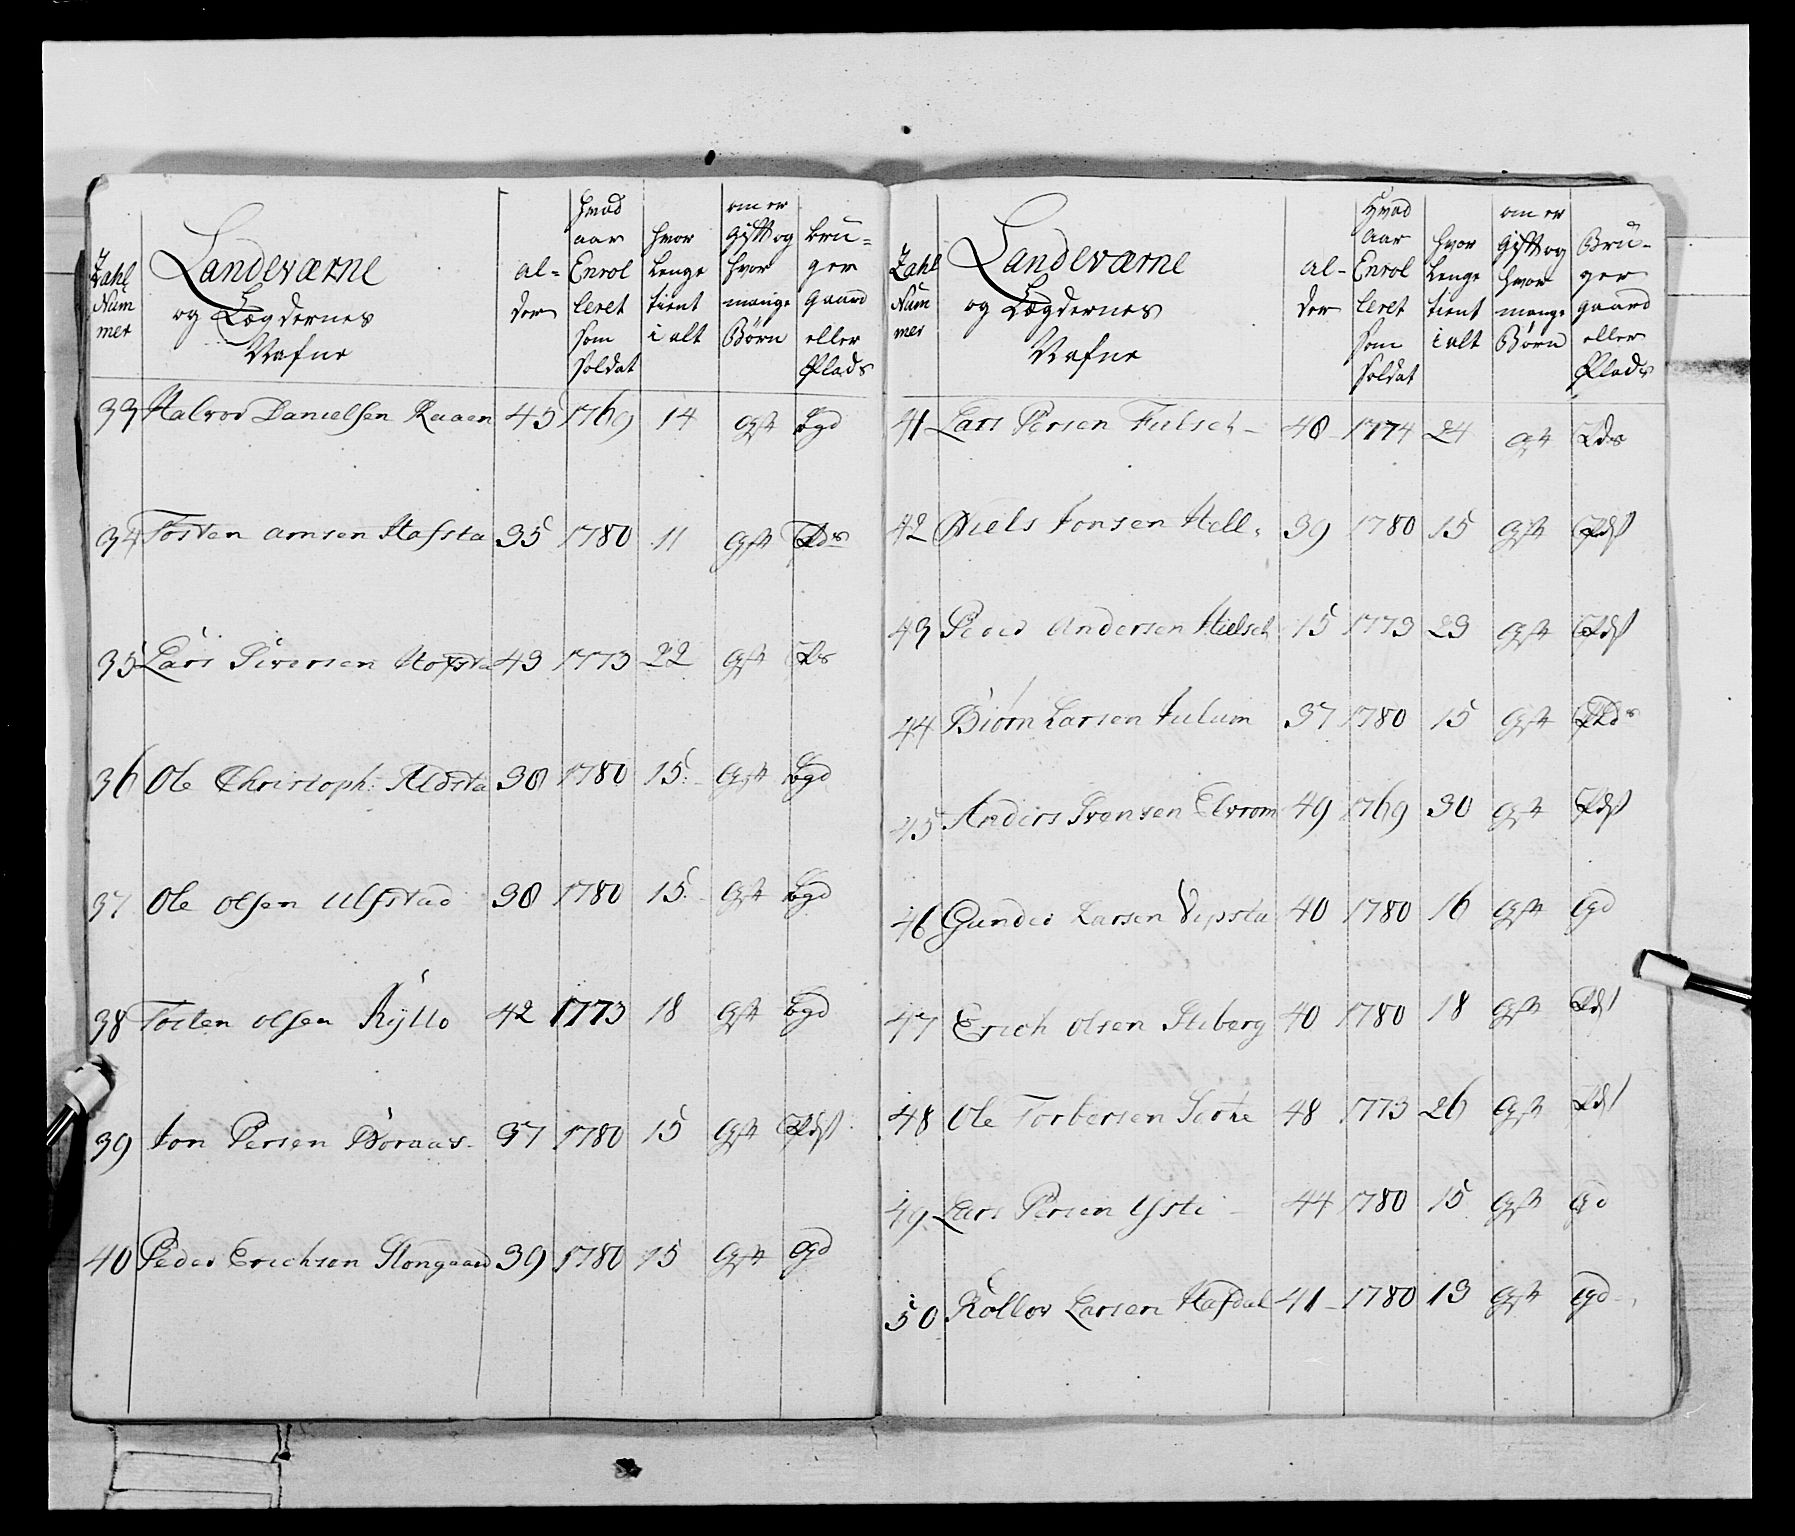 Zahl Num mer
Landeværne og Lægdernes Nafne
al- der
hvad aar Enrol leret som Soldat
hvor lenge tient i alt
om er gift og hvor mange Børn
bru- ger gaard eller Plads
33 Halvor Danielsen Raaen 45 1769 14 gft bgd
34 Tosten Amsen Hafsta 35 1780 11 gft Pds
35 Lars Siversen Hofsta 43 1773 22 gft Ps
36 Ole Christoph: Aldsta 38 1780 15 gft bgd
37 Ole Olsen Ulfstad 38 1780 15 gft bgd
38 Tosten Olsen Kyllo 42 1773 18 gft bgd
39 Jon Persen Boraas 37 1780 15 gft Pds
40 Peder Erichsen Stongaard 39 1780 15 gft gd
Zahl Num mer
Landeværne og Lægdernes Nafne
al- der
Hvad aar Enrol leret som Soldat
hvor lenge tient i alt
om er gift og hvor mange Børn
Bru- ger gaard eller Plads
41 Lars Persen 48 1774 24 gft Pds
42 Niels Jonsen Hell 39 1780 15 gft Pds
43 Peder Andersen 15 1773 23 gft Pds
44 Biørn Larsen Julum 37 1780 15 gft Plds
45 Anders Svensen Elvrom 49 1769 30 gft Pds
46 Gunder Larsen Vepsta 40 1780 16 gft gd
47 Erich Olsen Stiberg 40 1780 18 gft Pds
48 Ole Torbersen 48 1773 26 gft Pds
49 Lars Persen Yste 44 1780 15 gft gd
50 Rollov Larsen Hafdal 41 1780 13 gft gd